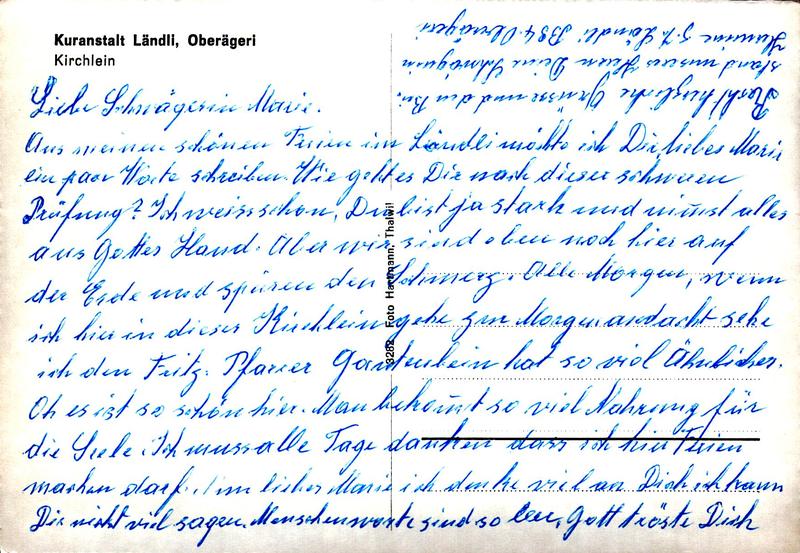 Kuranstalt Ländli, Oberägeri
Kirchlein
Liebe Schwägerin Marie.
Aus meinen schönen Ferien im Ländli möchte ich Dir liebes Marie
ein paar Worte schreiben. Wie geht es Dir nach dieser schweren
Prüfung? Ich weiss schon, Du bist ja stark und nimst alles
aus Gottes Hand. Aber wir sind eben noch hier auf
der Erde und spüren den Schmerz. Alle Morgen, wenn
ich hier in dieses Kirchlein gehe zur Morgenandacht sehe
ich den Fritz. Pfarrer Gantenbein hat so viel Ähnliches.
Oh es ist so schön hier. Man bekommt so viel Nahrung für
die Seele. Ich muss alle Tage danken dass ich hier Ferien
machen darf. liebes Marie ich denke viel an Dich ich kann
Dir nicht viel sagen. Menschenworte sind so leer, Gott tröste Dich
Recht herzliche Grüsse und den Bei-
stand unseres Herrn Deine Schwägerin
Ländli 6384 Oberägeri
3282 Foto Hartmann, Thalwil